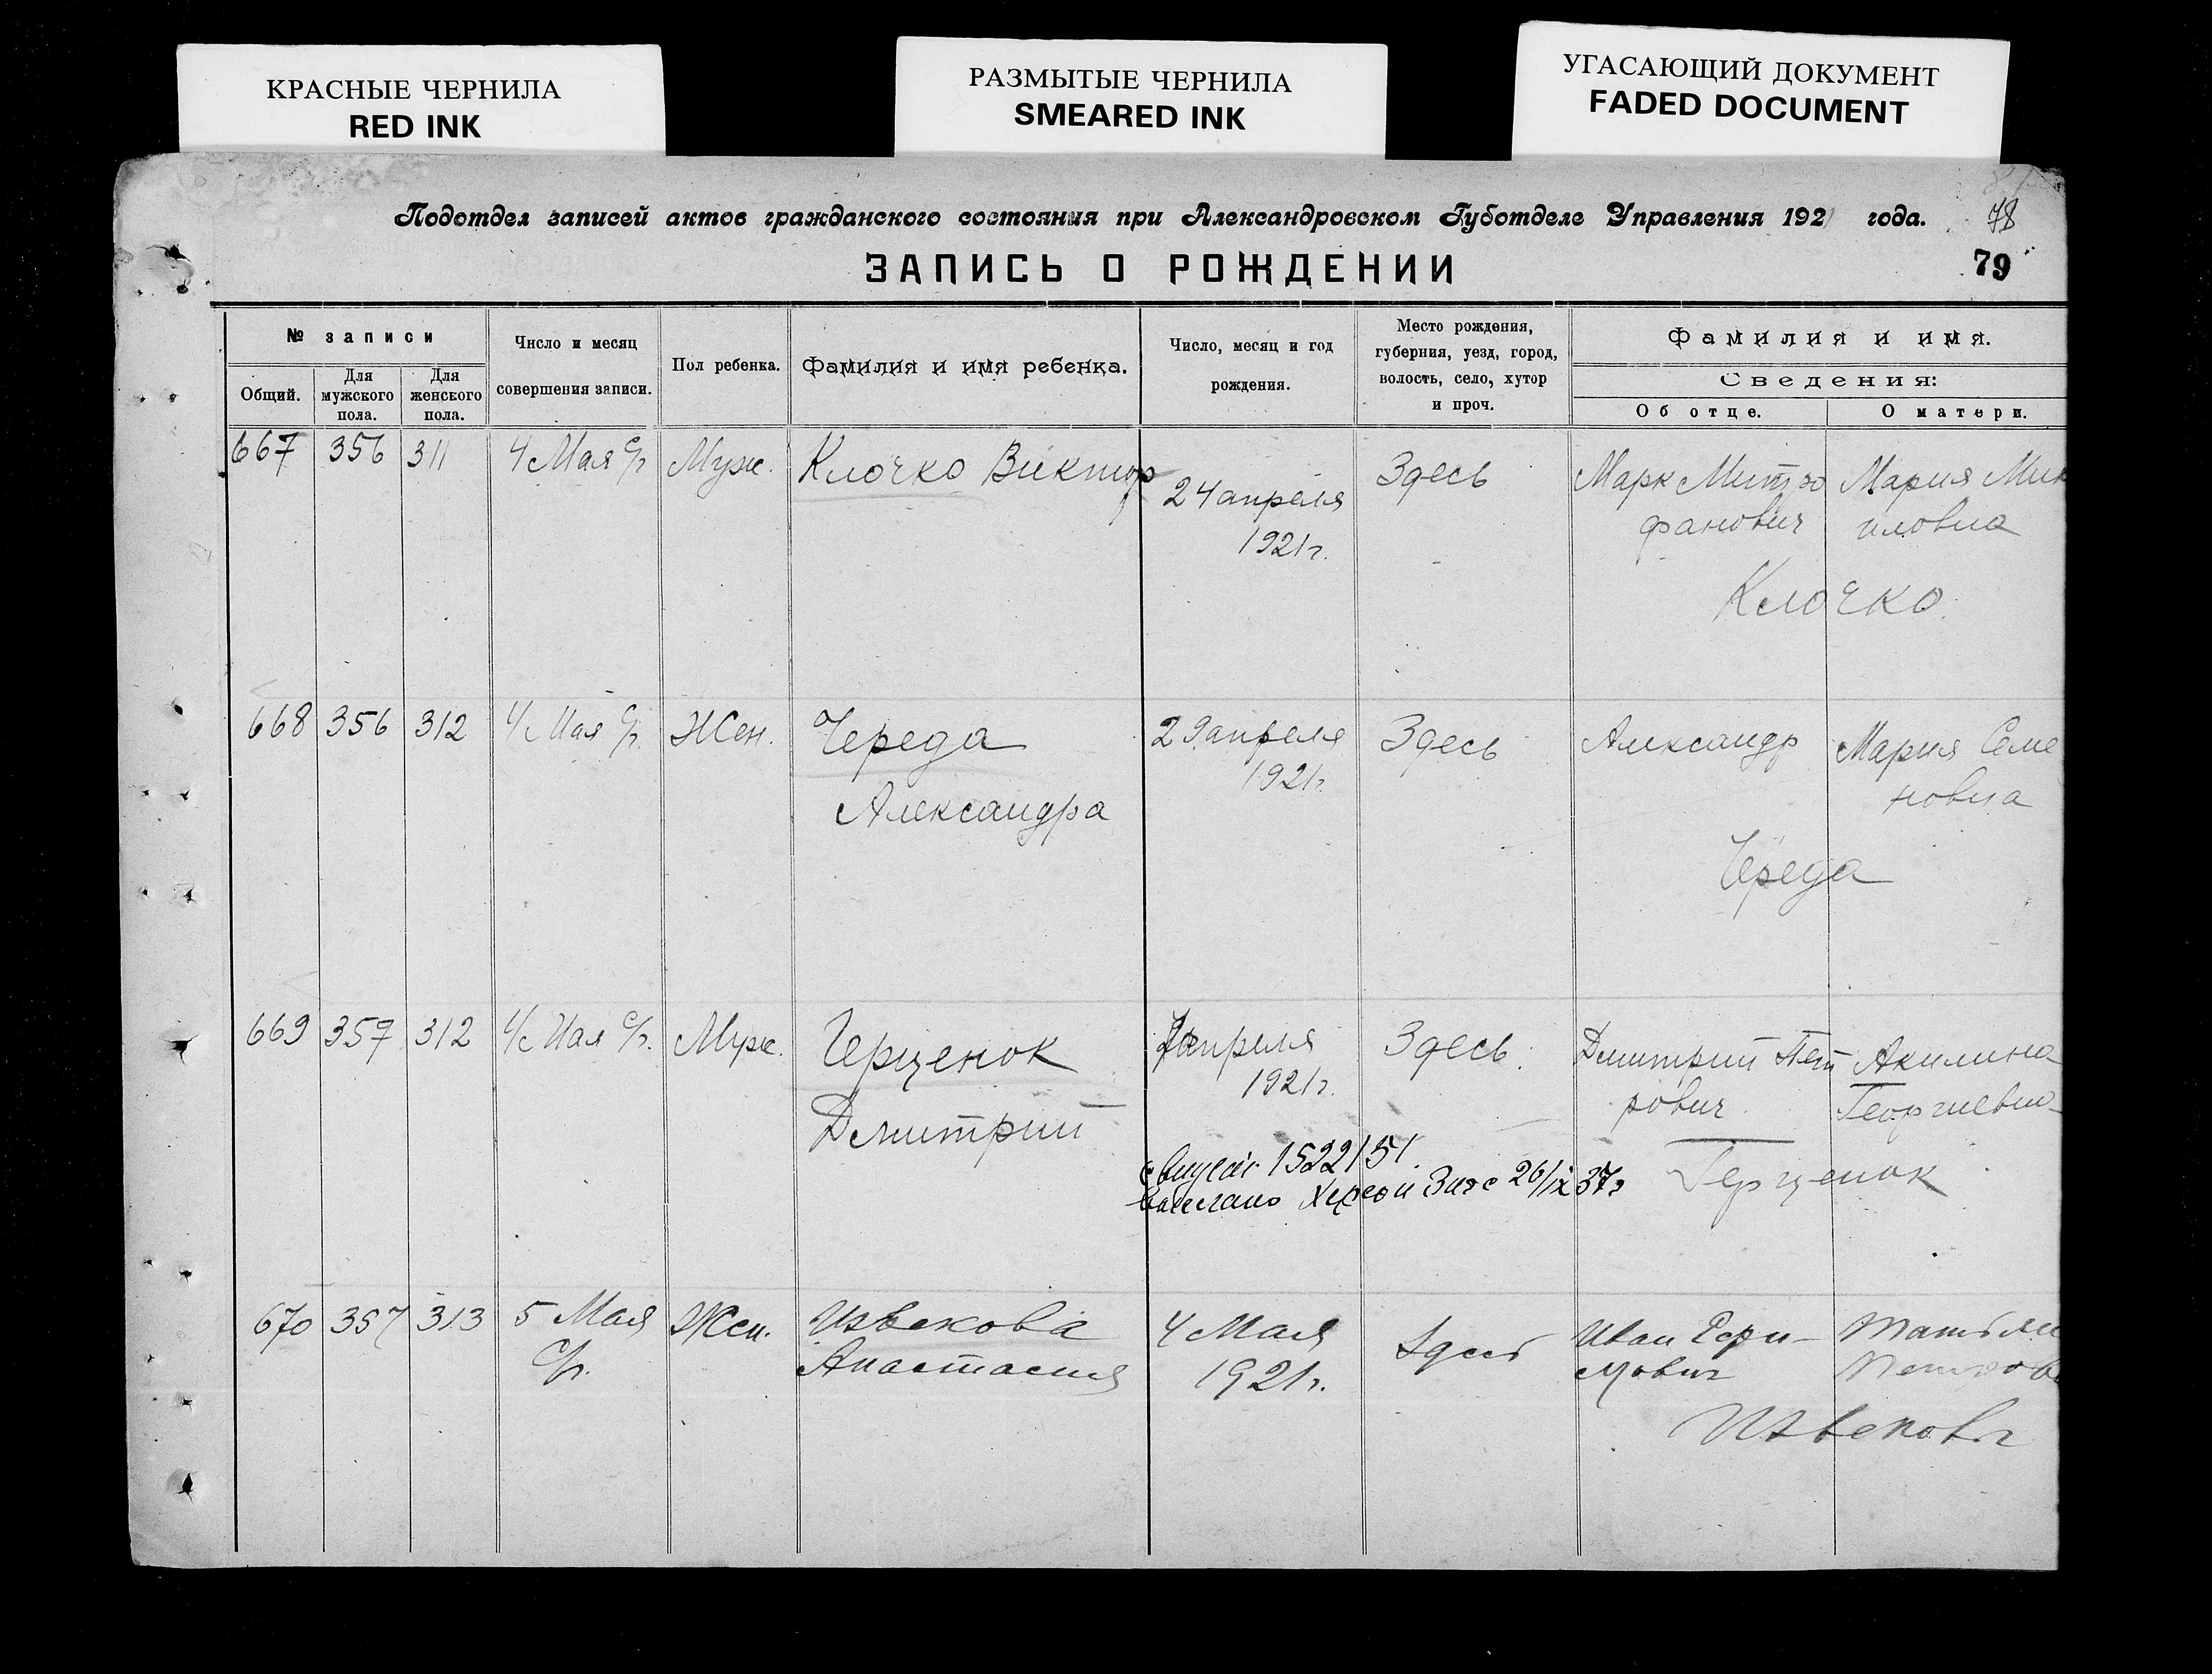 КРАСНЫЕ ЧЕРНИЛА
RED INK
РАЗМЫТЫЕ ЧЕРНИЛА
SMEARED INK
УГАСАЮЩИЙ ДОКУМЕНТ
FADED DOCUMENT
Подотдел записей актов гражданского состояния при Александровском Губотделе Управления 192 года.
78
ЗАПИСЬ О РОЖДЕНИИ
79
№ записи
Общий.
Для мужского пола.
Для женского пола.
Число и месяц совершения записи.
Пол ребенка.
Фамилия и имя ребенка.
Число, месяц и год рождения.
Место рождения, губерния, уезд, город, волость, село, хутор и проч.
Фамилия и имя.
Сведения:
Об отце.
О матери.
667 356 311 4 Мая с/г Муж. Клочко Виктор 24 апреля 1921г. Здесь Марк Митро Мария Мих
фанович иловна
Клочко
668 356 312 4 Мая с/г. Жен. Череда 29 апреля 1921г. Здесь Александр Мария Семе
Александра новна
Череда
669 357 312 4 Мая с/г. Муж. Герценок апреля 1921г. Здесь. Дмитрий Пет Акилина
Дмитрий рович Георгиевна
1522151.
Херсон Загс 26/IX 37г
Герценок
670 357 313 5 Мая с/г. Жен. Извекова 4 Мая 1921г. Здесь Иван Ефи-
Анастасия мович
Извековы